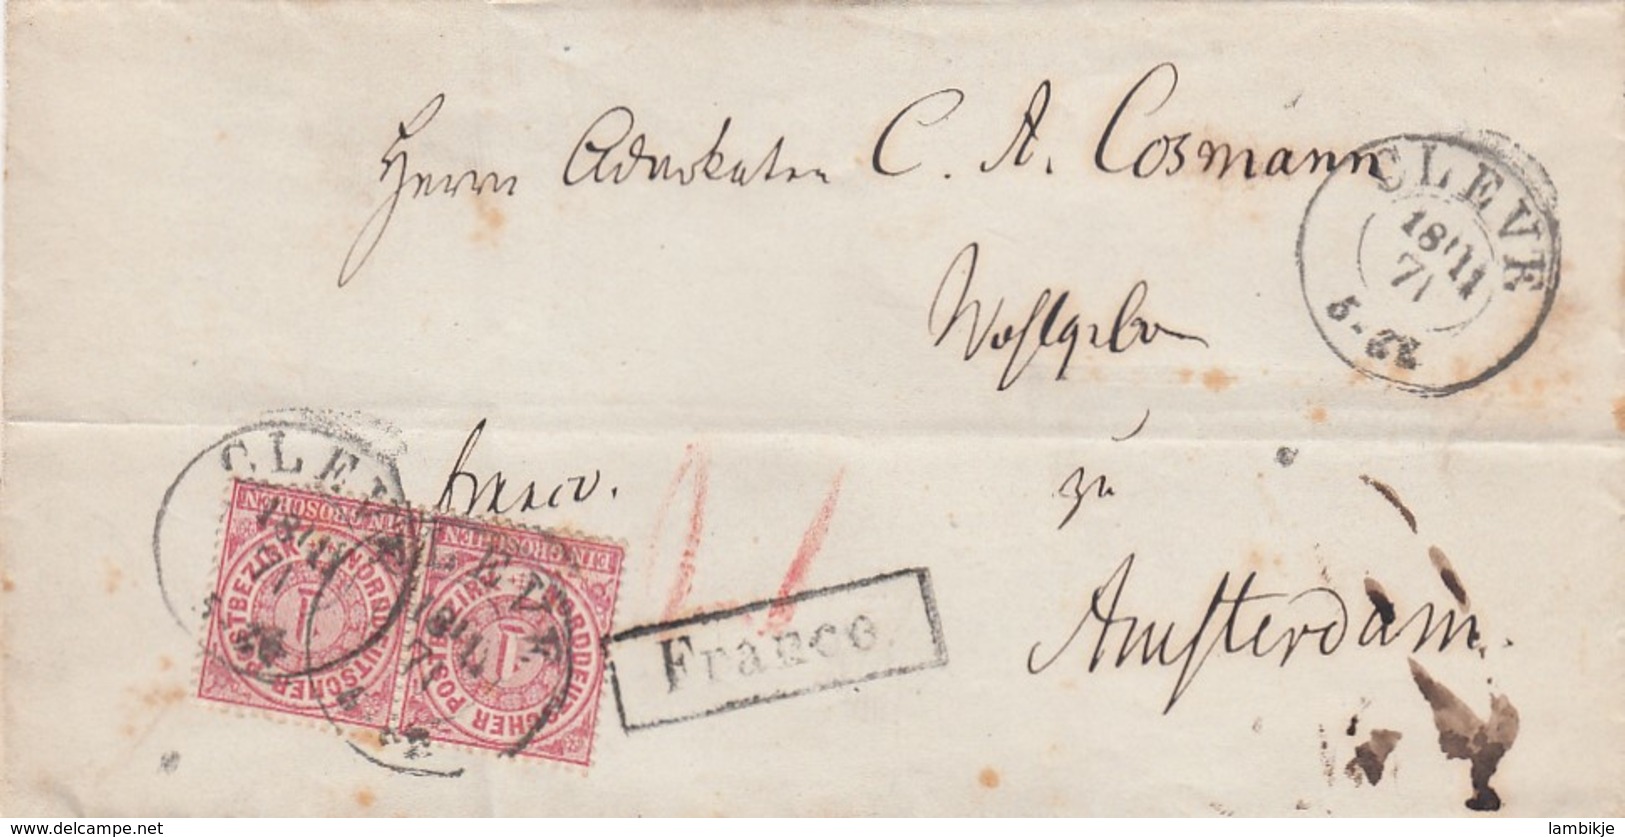 Herrn Advokaten C. A. Cosmann
Wohlgebor
franco.
zu
Amsterdam.
CLEVE
18 11
71
5-
CLEVE
18 11
CLEVE
18 11
71
EIN GROSCHEN
NORDDEUTSCHER POSTBEZIRK
1
EIN GROSCHEN
NORDDEUTSCHER POSTBEZIRK
1
Franco.
www.delcampe.net
lambikje